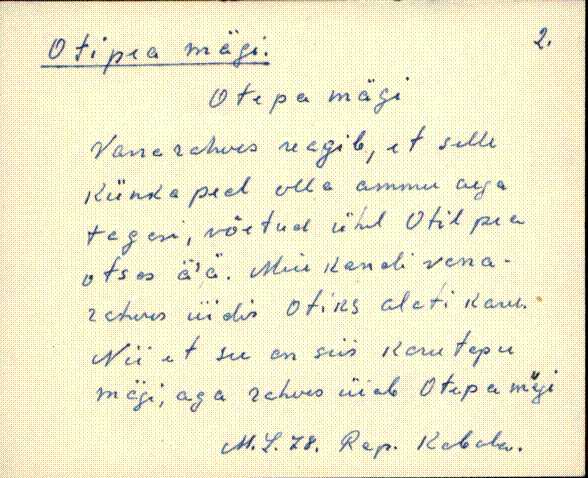 Otipea mägi.
2.
Otepa mägi
Vana rahvas reagib, et selle
künka peal olla ammu aega
tagasi, võetud ühel Otil pea
otsas ä'ä. Miu kandi vana-
rahvas üidis Otiks alati karu.
Nii et su on siis karutapu
mägi, aga rahvas üiab Otepa mägi
M.L. 78. Rap. Kabala.